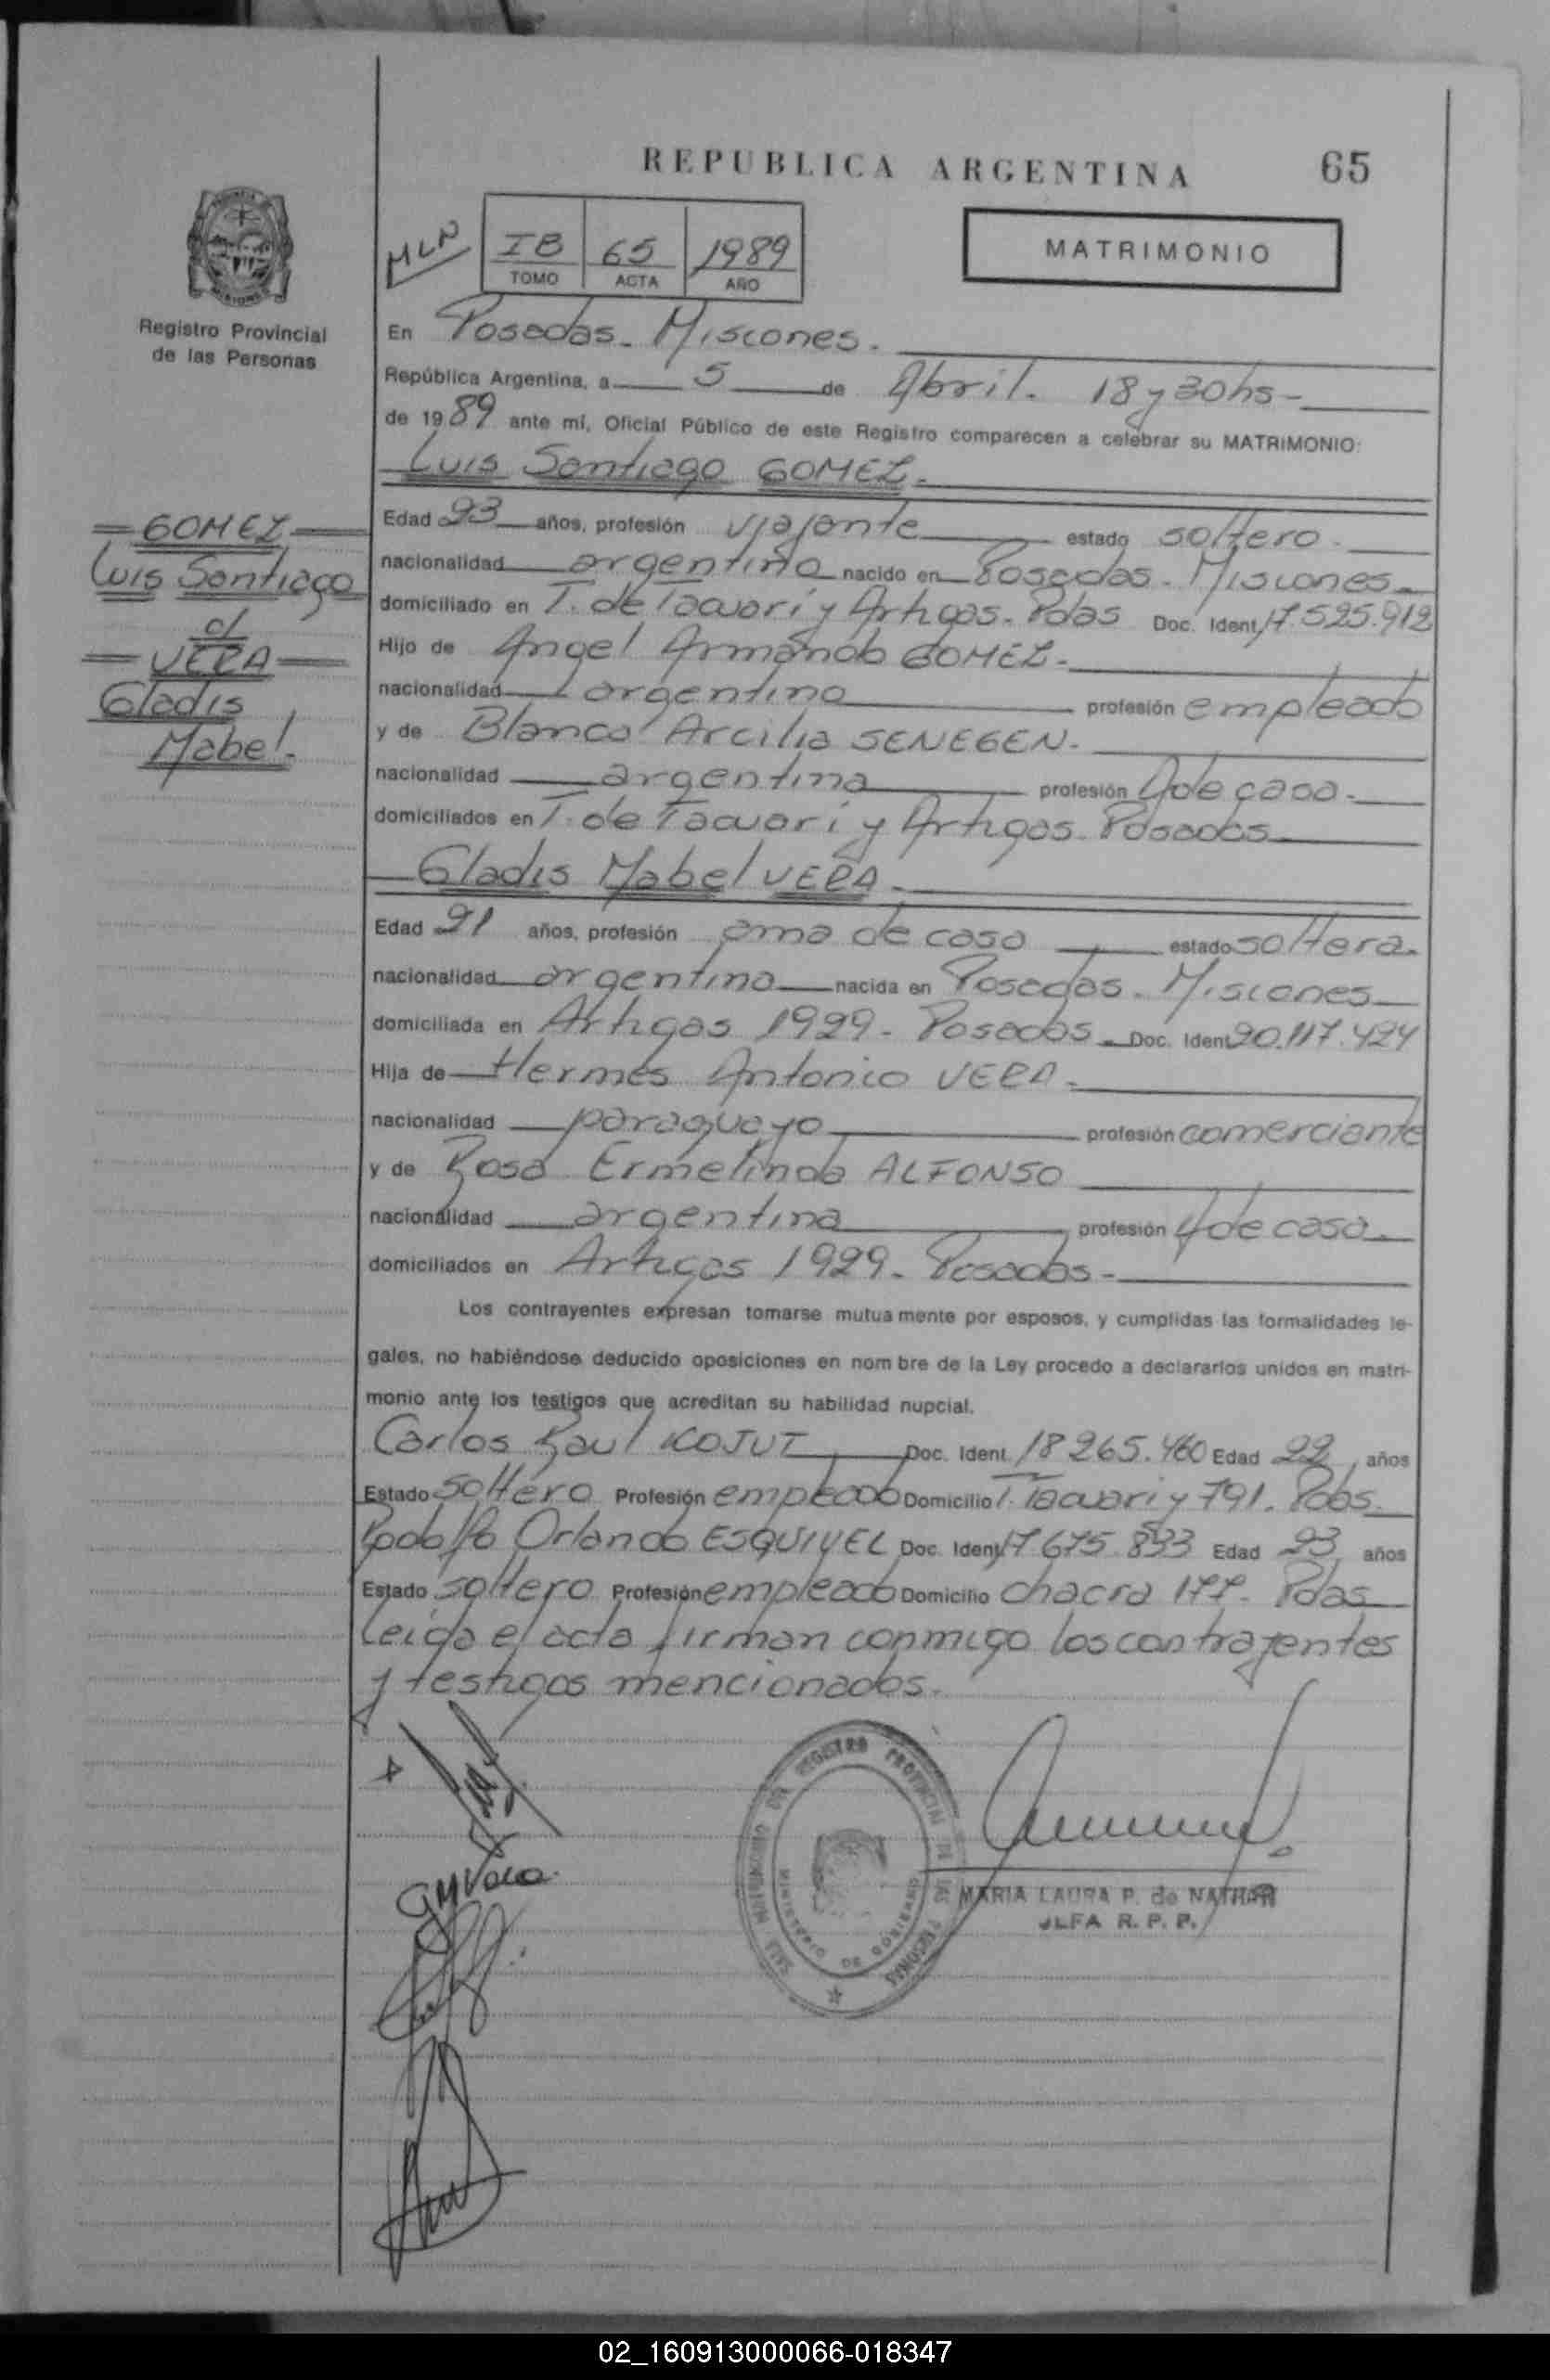 REPUBLICA ARGENTINA
65
MLN
IB 65 1989
TOMO ACTA AÑO
MATRIMONIO
Registro Provincial
de las Personas
En Posadas - Misiones.
República Argentina, a 5 de Abril. 18 y 30 hs -
de 1989 ante mí, Oficial Público de este Registro comparecen a celebrar su MATRIMONIO:
Luis Santiago GOMEZ.
Edad 23 años, profesión viajante estado soltero.
nacionalidad argentino nacido en Posadas - Misiones
domiciliado en T. de Tacuarí y Artigas - Pdas Doc. Ident. 17.525.912
Hijo de Angel Armando GOMEZ.
nacionalidad argentino profesión empleado
y de Blanca Arcilia SENEGEN.
nacionalidad argentina profesión A de casa.
domiciliados en T. de Tacuarí y Artigas - Posadas
Gladis Mabel VERA.
Edad 21 años, profesión ama de casa estado soltera.
nacionalidad argentina nacida en Posadas - Misiones
domiciliada en Artigas 1929 - Posadas - Doc. Ident 20.117.424
Hija de Hermes Antonio VERA.
nacionalidad paraguayo profesión comerciante
y de Rosa Ermelinda ALFONSO
nacionalidad argentina profesión A de casa.
domiciliados en Artigas 1929 - Posadas -
Los contrayentes expresan tomarse mutua mente por esposos, y cumplidas las formalidades le-
gales, no habiéndose deducido oposiciones en nom bre de la Ley procedo a declararlos unidos en matri-
monio ante los testigos que acreditan su habilidad nupcial.
Carlos Raul KOJUT Doc. Ident. 18 265.460 Edad 22 años
Estado soltero Profesión empleado Domicilio T. Tacuari y 791. Pdas.
Rodolfo Orlando ESQUIVEL Doc. Ident 17 675.833 Edad 23 años
Estado soltero Profesión empleado Domicilio chacra 177 - Pdas
Leída el acta firman conmigo los contrayentes
y testigos mencionados.
GOMEZ
Luis Santiago
c/
VERA
Gladis
Mabel.
GMVera.
REGISTRO PROVINCIAL DE LAS PERSONAS
MINISTERIO DE GOBIERNO
MARIA LAURA P. de NATHAR
JEFA R. P. P.
02_160913000066-018347